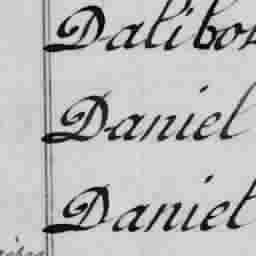 Dalibor
Daniel
Daniel